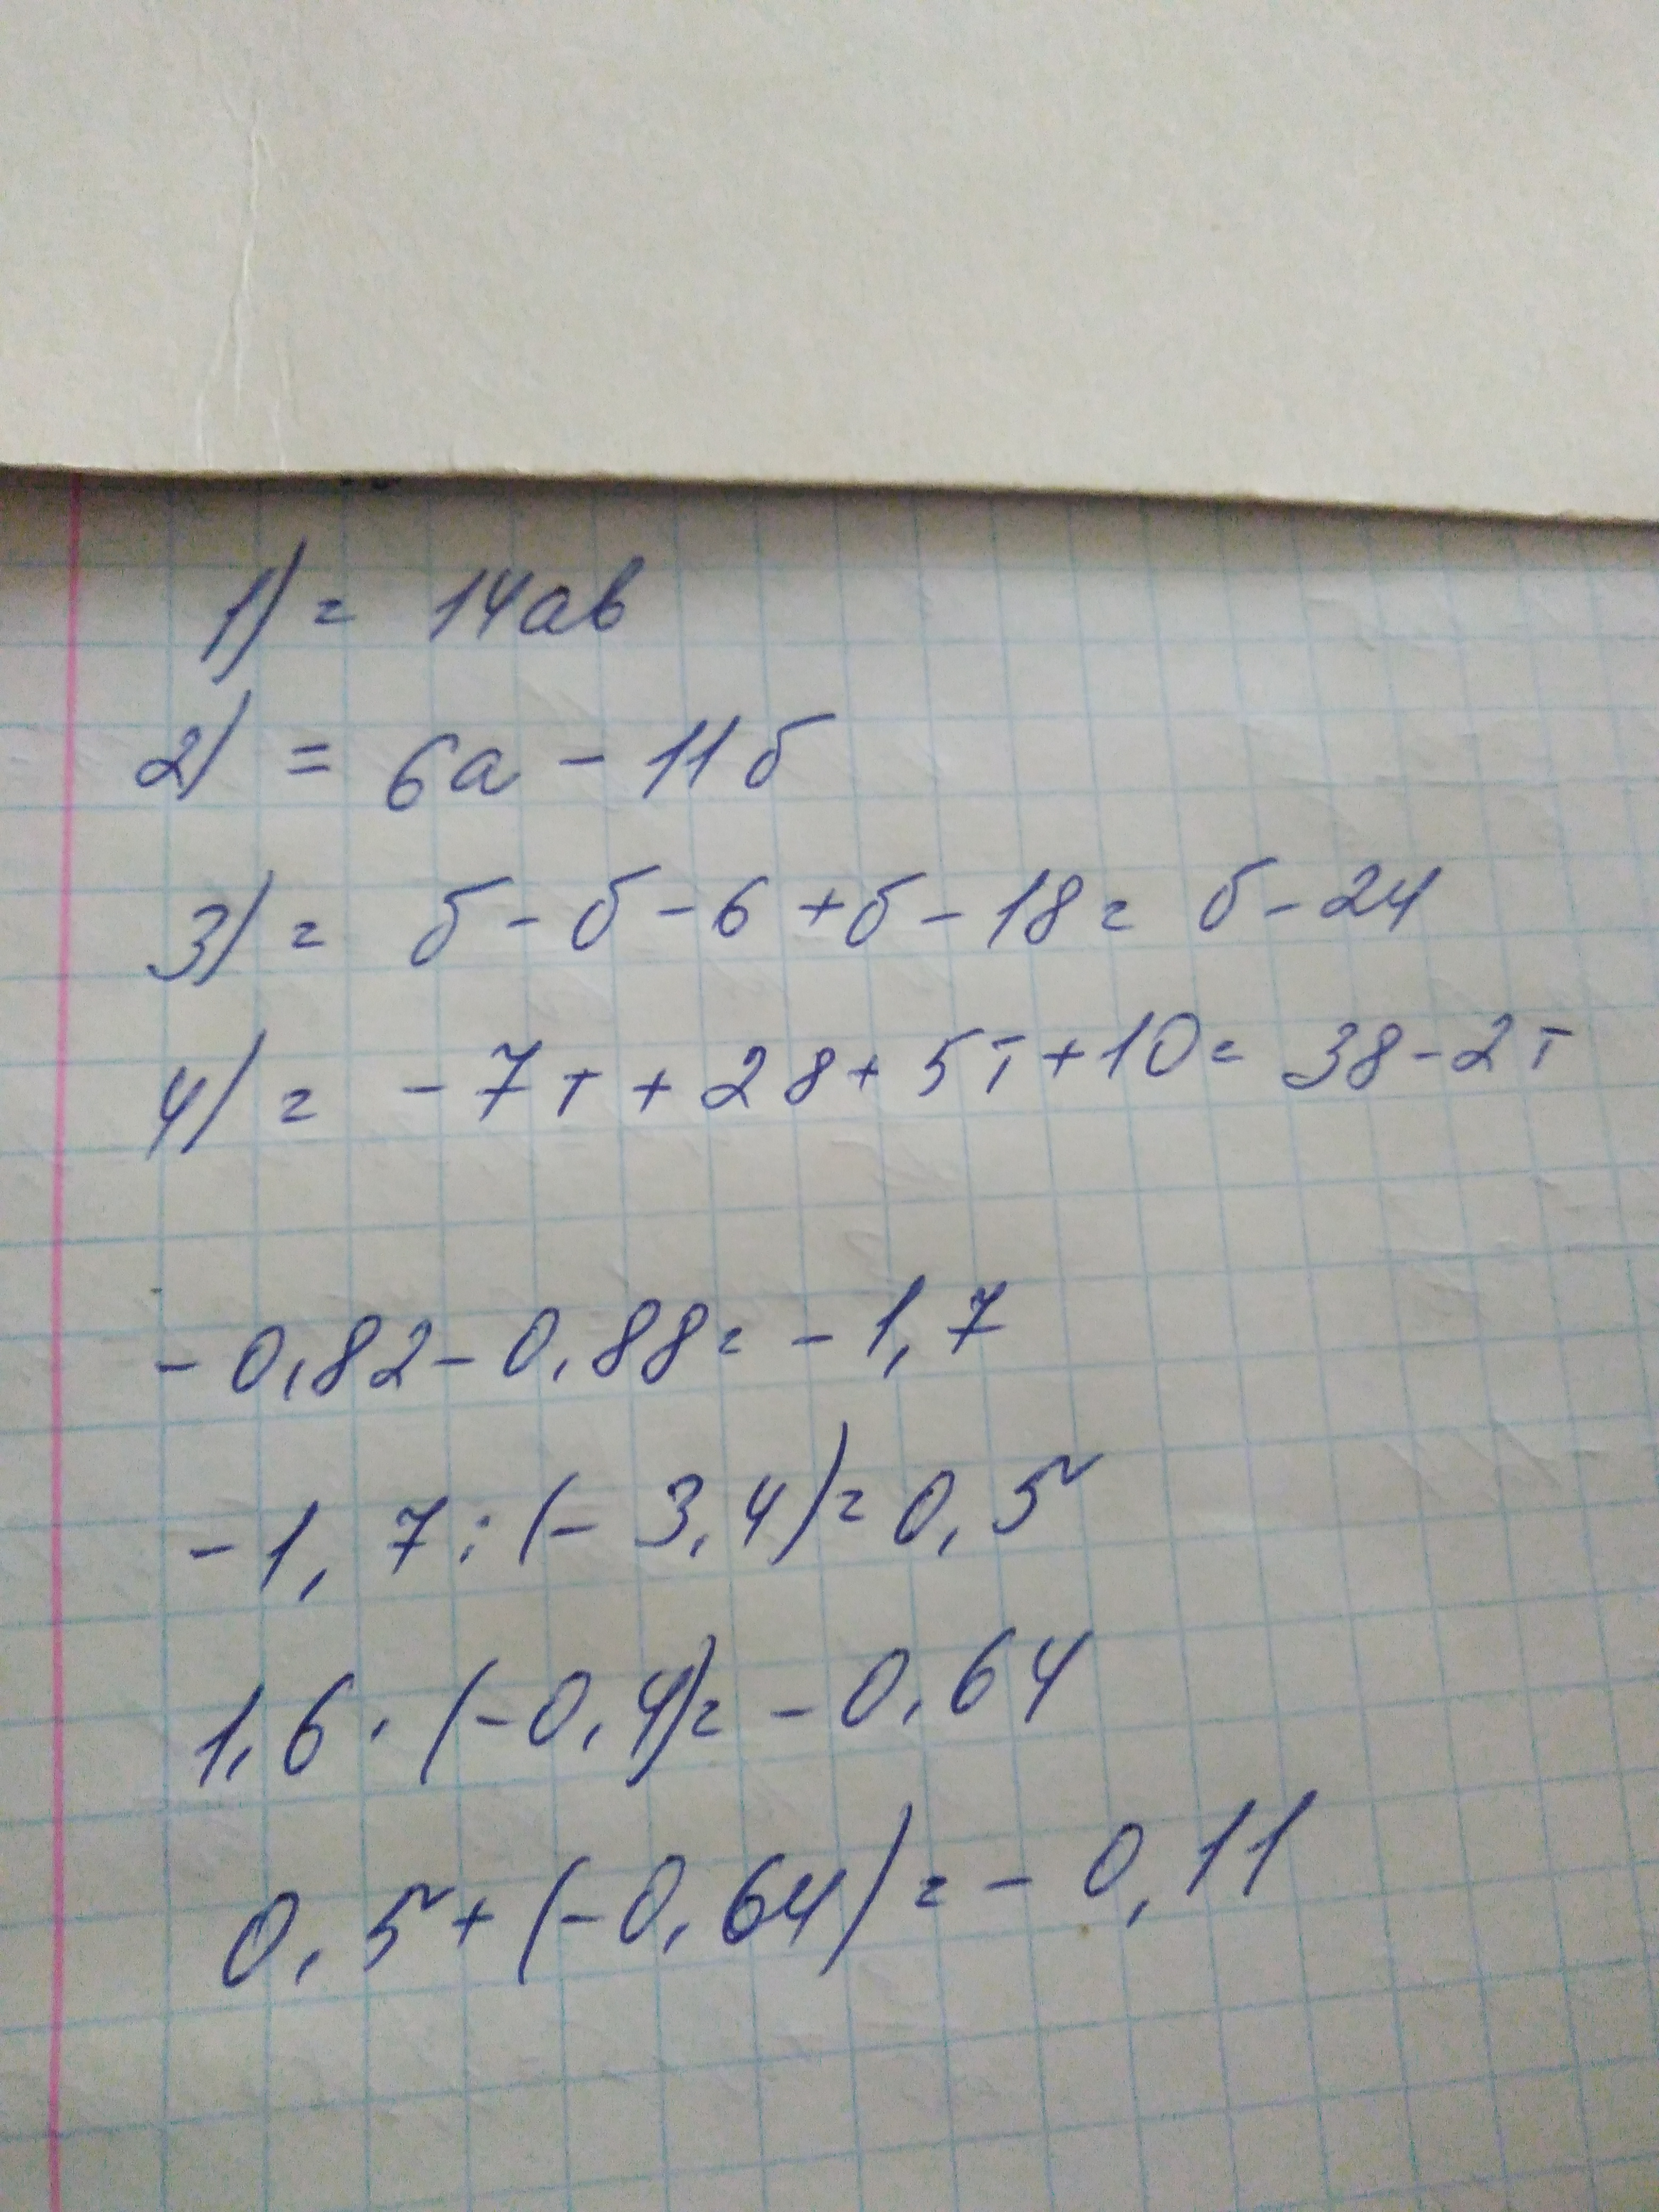 1) = 14ав
2) = 6а - 11б
3) = б - б - 6 + б - 18 = б - 24
4) = - 7т + 28 + 5т + 10 = 38 - 2т
- 0,82 - 0,88 = - 1,7
- 1,7 : (- 3,4) = 0,5
1,6 · (-0,4) = - 0,64
0,5 + (-0,64) = - 0,11